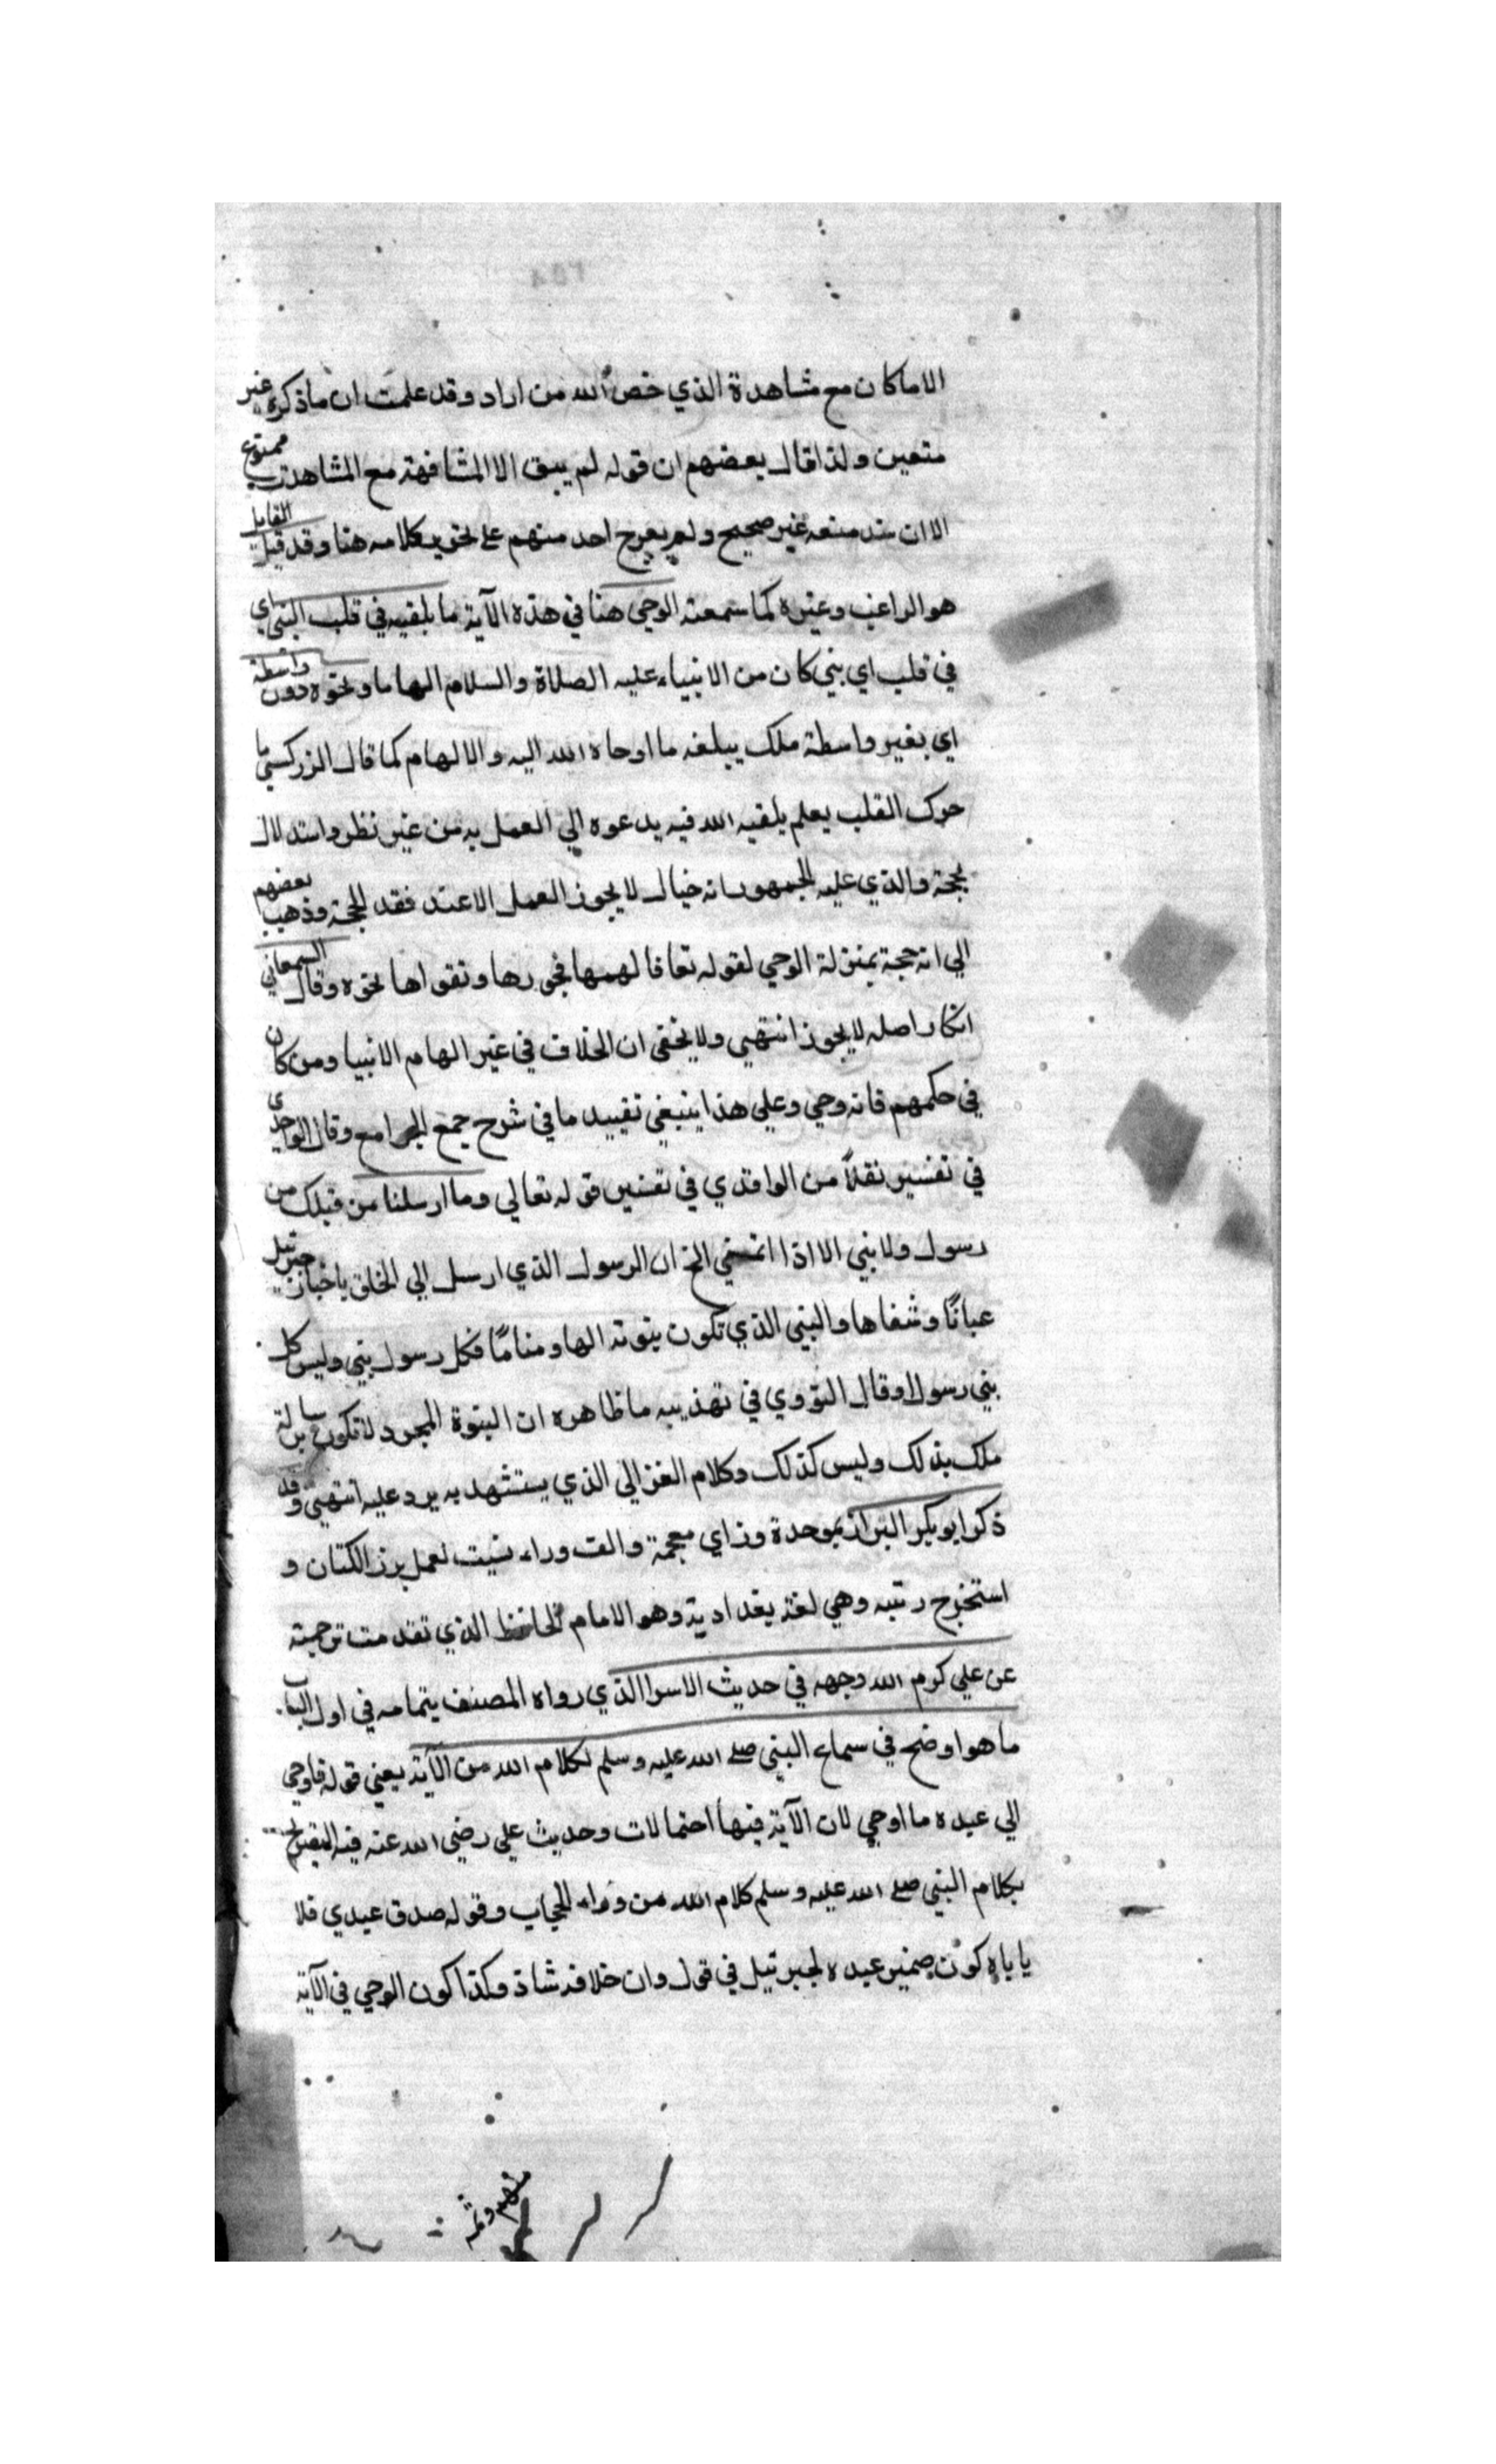 الا ما كان مع مشاهدة الذي خص الله من اراد وقد علمت ان ما ذكره غير
متعين ولذا قال بعضهم ان قوله لم يبق الا المشافهة مع المشاهدة ممنوع
الا ان سند منعه غير صحيح ولم يعرج احد منهم على تحقيق كلامه هنا وقد قيل القايل
هو الراغب وغيره كما سمعته الوحي هنا في هذه الآية ما يلقيه في قلب النبي اي
في قلب اي نبي كان من الانبياء عليه الصلاة والسلام الهاما ونحوه دون واسطة
اي بغير واسطة ملك يبلغه ما اوحاه الله اليه والالهام كما قال الزركشي ما
حرك القلب بعلم يلقيه الله فيه يدعوه الي العمل به من غير نظر واستدلال
بحجة والذي عليه الجمهور انه خيال لا يجوز العمل الا عند فقد الحجة وذهب بعضهم
الي انه حجة بمنزلة الوحي لقوله تعا فالهمها فجورها وتقواها نحوه وقال السمعاني
انكار اصله لا يجوز انتهي ولا يخفي ان الخلاف في غير الهام الانبيا ومن كان
في حكمهم فانه وحي وعلي هذا ينبغي تقييد ما في شرح جمع الجوامع وقال الواحدي
في تفسير نقلاً من الواقدي في تفسير قوله تعالي وما ارسلنا من قبلك من
رسول ولا نبي الا اذا اتمنى الخ ان الرسول الذي ارسل الي الخلق باخبار جبرئيل
عيانًا وشفاها والنبي الذي تكون نبوته الها ومنامًا فكل رسول نبي وليس كل
نبي رسولا وقال النووي في تهذيبه ما ظاهره ان النبوة المجرد لا تكون برسالة
ملك بذلك وليس كذلك وكلام الغزالي الذي يستشهد به يرد عليه انتهي وقد
ذكر ابو بكر البزاز بموحدة وزاي معجمة والف وراء نسبت لعمل بزر الكتان و
استخرج زيته وهي لغة بغدادية وهو الامام الحافظ الذي تقدمت ترجمته
عن علي كرم الله وجهه في حديث الاسرا الذي رواه المصنف بتمامه في اول الباب
ما هو اوضح في سماع النبي صلى الله عليه وسلم لكلام الله من الآية يعني قوله فاوحي
الي عبده ما اوحي لان الآية فيها احتمالات وحديث علي رضي الله عنه فيه التصريح
بكلام النبي صلى الله عليه وسلم كلام الله من وراء الحجاب وقوله صدق عبدي فلا
ياباه كون ضمير عبده لجبرئيل في قول وان خلافه شاذ وكذا كون الوحي في الآية